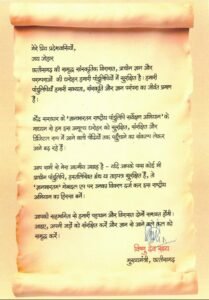 मेरे प्रिय प्रदेशवासियों,
जय जोहार
छत्तीसगढ़ की समृद्ध सांस्कृतिक विरासत, प्राचीन ज्ञान और
परम्पराओं की धरोहर हमारी पांडुलिपियों में सुरक्षित है। हमारी
पांडुलिपियाँ हमारी सभ्यता, संस्कृति और ज्ञान परंपरा का जीवंत प्रमाण
हैं।
केंद्र सरकार के "ज्ञानभारतम राष्ट्रीय पांडुलिपि सर्वेक्षण अभियान" के
माध्यम से हम इस अमूल्य धरोहर को सुरक्षित, संरक्षित और
डिजिटल रूप में आने वाली पीढ़ियों तक पहुँचाने का संकल्प लेकर
आगे बढ़ रहे हैं।
आप सभी से मेरा आत्मीय आग्रह है - यदि आपके पास कोई भी
प्राचीन पांडुलिपि, हस्तलिखित ग्रंथ या ताड़पत्र सुरक्षित है, तो
"ज्ञानभारतम" मोबाइल एप पर उसका विवरण दर्ज कर इस राष्ट्रीय
अभियान का हिस्सा बनें।
आपकी सहभागिता से हमारी पहचान और विरासत दोनों सशक्त होंगी।
आइए, अपनी जड़ों को संरक्षित करें और ज्ञान से आने वाले कल को
समृद्ध करें।
विष्णु देव साय
मुख्यमंत्री, छत्तीसगढ़